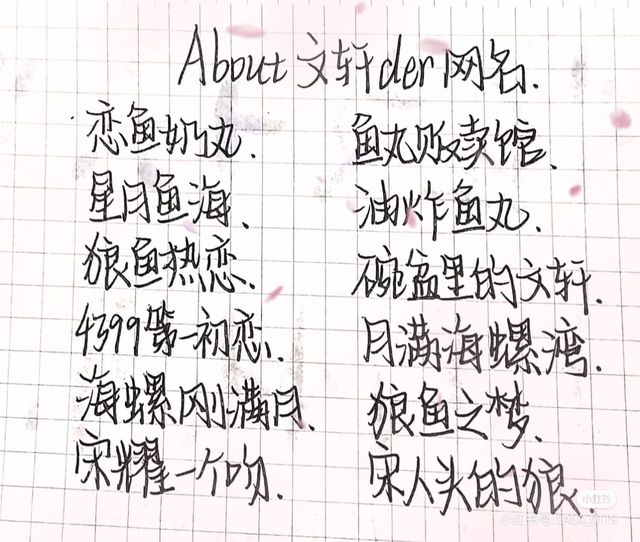 About文轩der网名.
恋鱼奶丸.
星月鱼海.
狼鱼热恋.
4399第一初恋.
海螺刚满月.
宋耀一个吻.
鱼丸贩卖馆.
油炸鱼丸.
碗盆里的文轩.
月满海螺湾.
狼鱼之梦.
宋人头的狼.
小红书